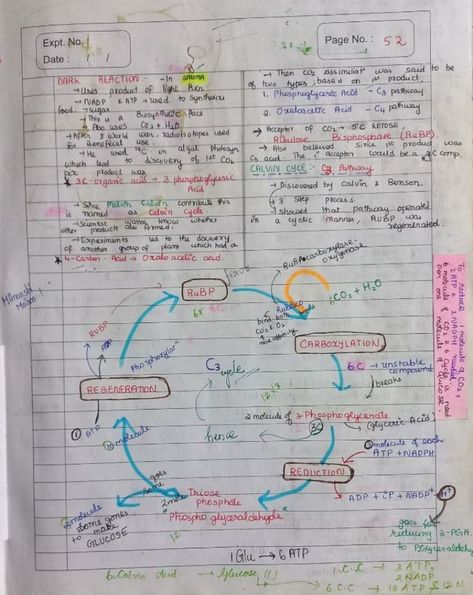 Expt. No.
Date :
Page No. : 52
DARK REACTION :- In STROMA
→ Uses product of light Rxn
→ NADP & ATP → used to synthesize
food → sugar
→ This is a Biosynthetic Phase
→ Also uses CO2 + H2O
→ After II world war, radioisotopes used
for beneficial use
→ He used 14C in algal photosyn
which led to discovery of 1st CO2
fix product was
* 3C-organic acid → 3 phosphoglyceric
Acid
→ Since Melvin Calvin contribute this
is named as Calvin Cycle
→ Scientist wanna know whether
other products also formed.
→ Experiments led to the discovery
of another group of plant which had a
* 4-Carbon-Acid → Oxalo acetic acid.
→ Then CO2 assimilatn was said to be
of two types, based on 1st product.
1. Phosphoglyceric Acid - C3 pathway
2. Oxaloacetic Acid - C4 pathway
→ Acceptor of CO2 → 5C KETOSE
Ribulose Bisphosphate (RuBP)
→ Also believed since 1st product was
C3 acid. The 1° acceptor would be a 2C comp.
CALVIN CYCLE :- C3 Pathway
→ Discovered by Calvin & Benson.
→ 3 Step process
→ showed that pathway operated
in a cyclic manner, RuBP was
regenerated.
RuBP
6x
RuBP carboxylase-
oxygenase
6CO2 + H2O
CARBOXYLATION
6C → unstable
compound
breaks
2 molecule of 3-Phosphoglycerate
3C
(Glyceric Acid)
2 molecule of each
ATP + NADPH
REDUCTION
ADP + iP + NADP+
H+
goes for
reducing 3-PGA
to PGlyceraldehyde
Triose
phosphate
"Phospho glyceraldehyde"
12
2 mole
goes
some
2 molecule
some gones
to make
GLUCOSE
molecule
REGENERATION
1 ATP
ADP
RuBP
C3
cycle
hence
To reduce 1 molecule of CO2,
3 ATP & 2 NADPH needed
6 molecule of CO2 & 6 cycle is need
for one molecule of Glucose.
1Glu → 6 ATP
6 Calvin
→ Glucose (1)
1 C.C → 3 ATP,
2 NADP
6 C.C → 18 ATP & 12 N